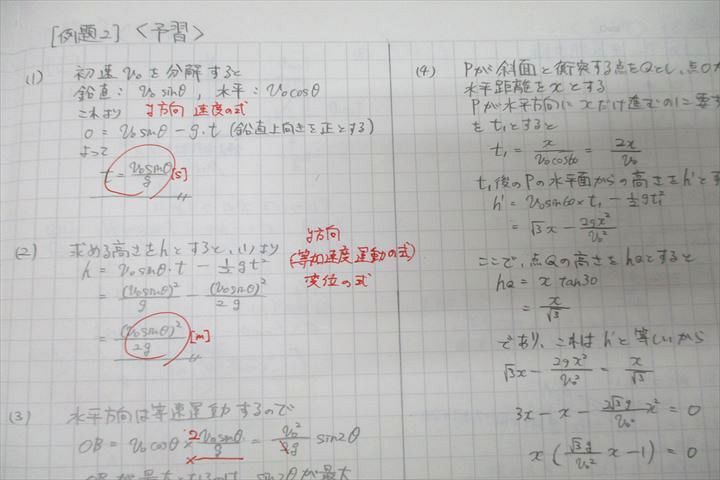 [例題2] <予習>
(1) 初速 v₀ を分解すると
鉛直: v₀ sinθ , 水平: v₀cosθ
これより y方向 速度の式
0 = v₀sinθ - g・t (鉛直上向きを正とする)
よって
t = v₀sinθ/g [s]
(2) 求める高さをhとすると、(1)より
h = v₀sinθ・t - 1/2 gt²
= (v₀sinθ)²/g - (v₀sinθ)²/2g
= (v₀sinθ)²/2g [m]
y方向
(等加速度運動の式)
変位の式
(3) 水平方向は等速運動するので
OB = v₀cosθ × 2v₀sinθ/g = v₀²/g sin2θ
(4) Pが斜面と衝突する点をQとし、点O
水平距離をxとする
Pが水平方向にxだけ進むのに要す
をt₁とすると
t₁ = x/v₀cos60 = 2x/v₀
t₁後のPの水平面からの高さをh'とす
h' = v₀sin60×t₁ - 1/2 gt₁²
= √3x - 2gx²/v₀²
ここで、点Qの高さをhQとすると
hQ = x tan30
= x/√3
であり、これはh'と等しいから
√3x - 2gx²/v₀² = x/√3
3x - x - 2√3g/v₀² x² = 0
x(√3g/v₀² x - 1) = 0